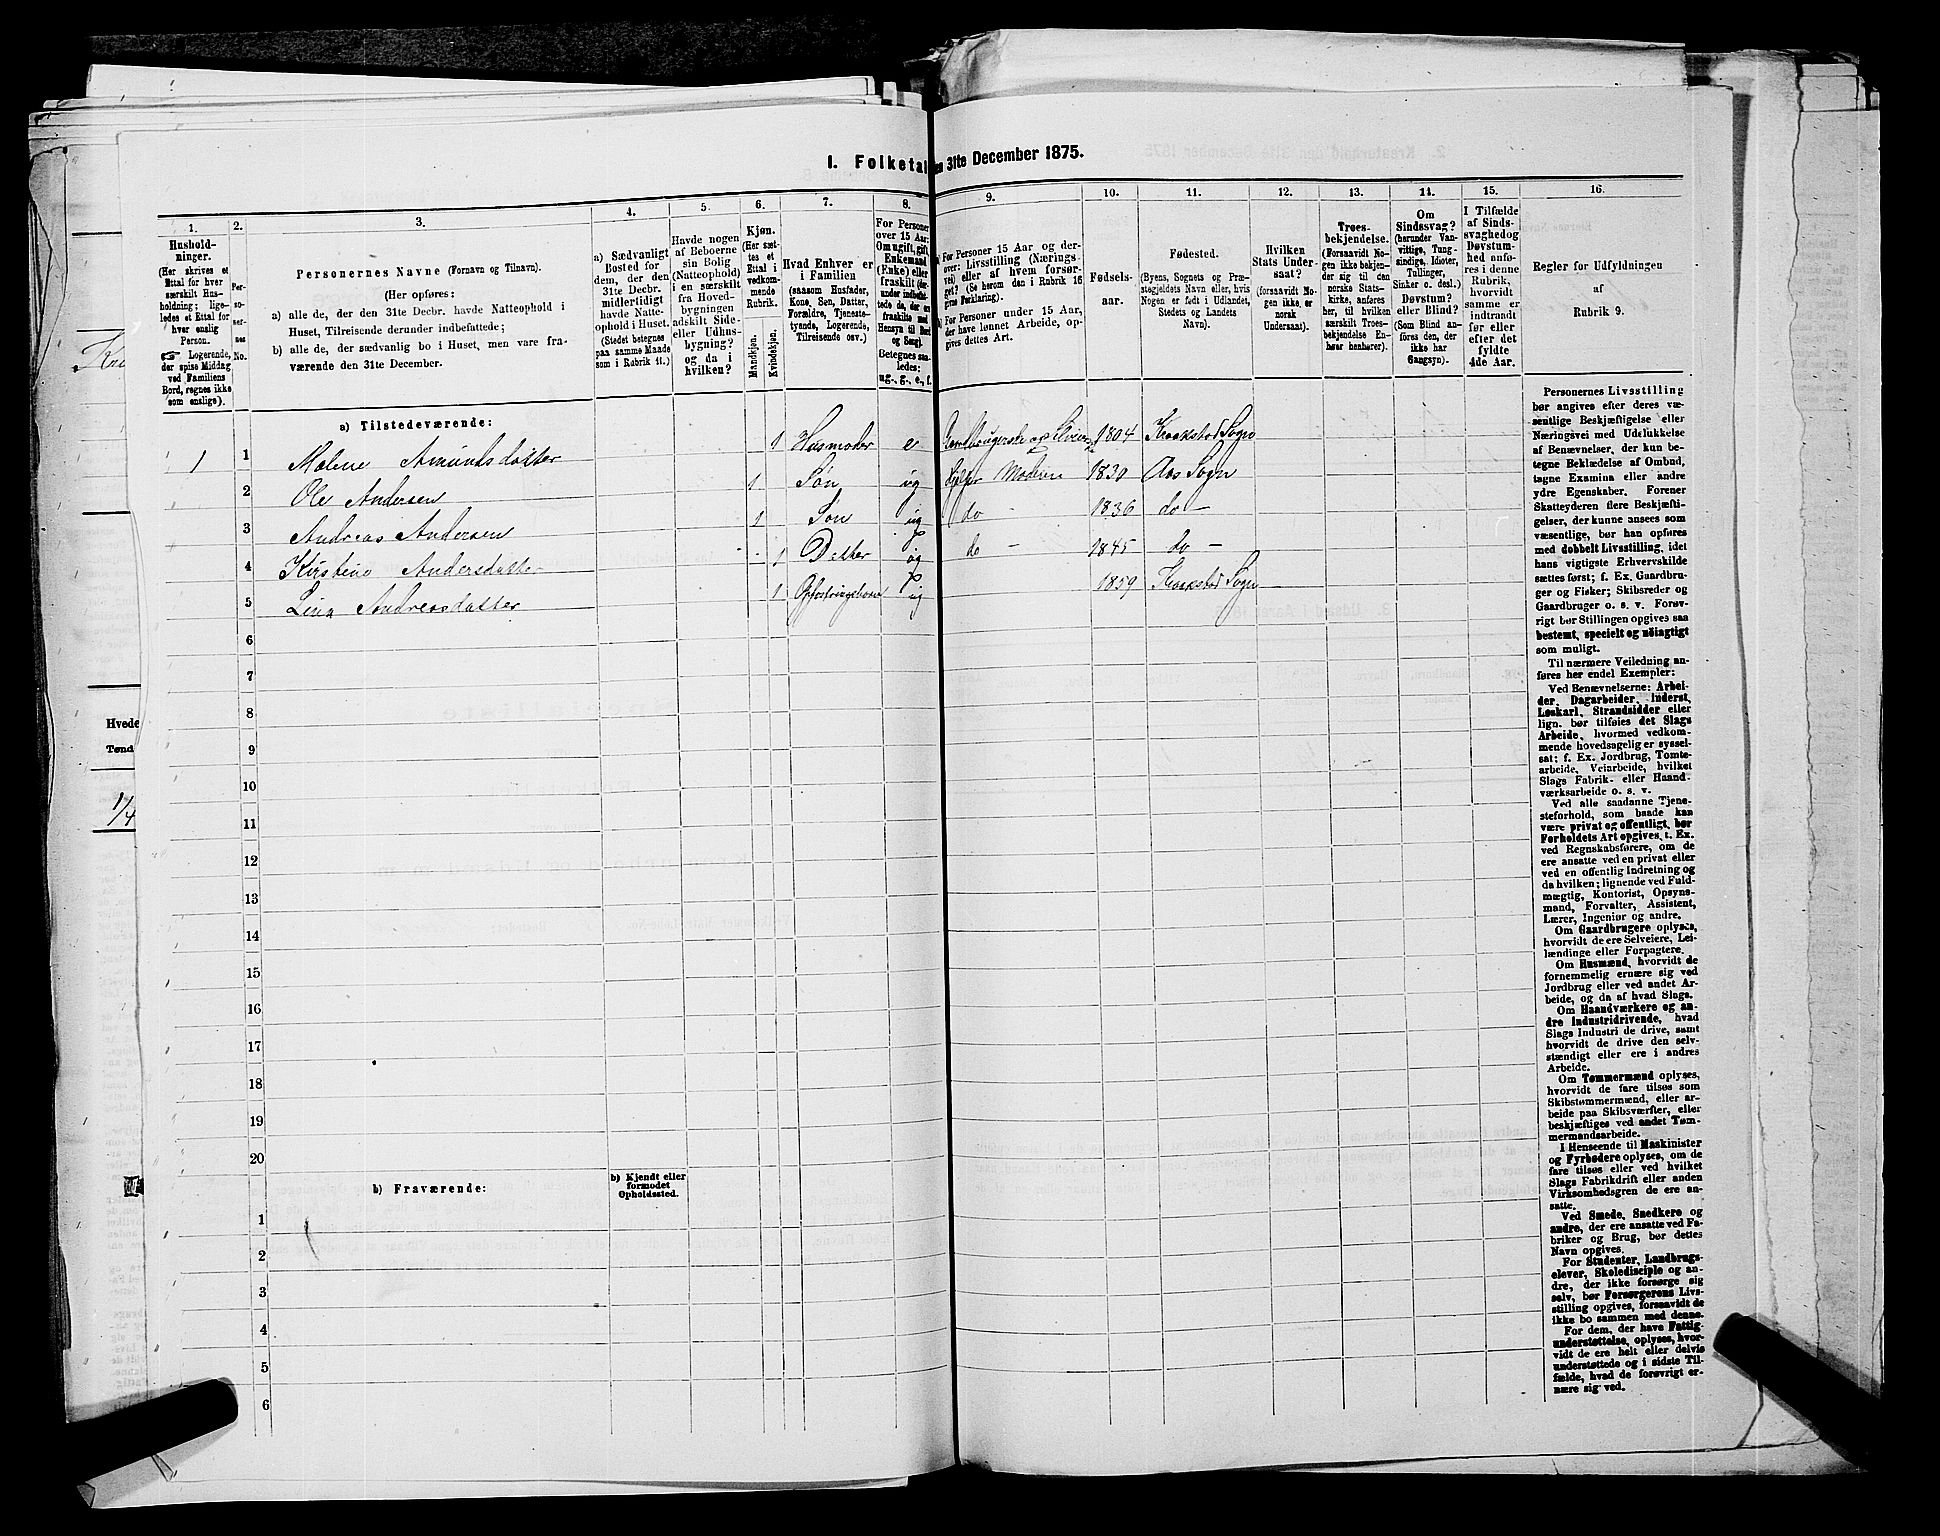 I. Folketal
den 31te December 1875.
1.
2.
3.
4.
5.
6.
7.
8.
9.
10.
11.
12.
13.
14.
15.
16.
Hushold-
ninger.
(Her skrives et
Ettal for hver
særskilt Hus-
holdning; lige-
ledes et Ettal for
hver enslig
Person.
☞ Logerende,
der spise Middag
ved Familiens
Bord, regnes ikke
som enslige).
Per-
so-
ner-
nes
No.
Personernes Navne (Fornavn og Tilnavn).
(Her opføres:
a) alle de, der den 31te Decbr. havde Natteophold i
Huset, Tilreisende derunder indbefattede;
b) alle de, der sædvanlig bo i Huset, men vare fra-
værende den 31te December.
a) Sædvanligt
Bosted for
dem, der den
31te Decbr.
midlertidigt
havde Natte-
ophold i Huset.
(Stedet betegnes
paa samme Maade
som i Rubrik 11.)
Havde nogen
af Beboerne
sin Bolig
(Natteophold)
i en særskilt
fra Hoved-
bygningen
adskilt Side-
eller Udhus-
bygning?
og da i
hvilken?
Kjøn.
(Her sæt-
tes et
Ettal i
vedkom-
mende
Rubrik.
Mandkjøn.
Kvindekjøn.
Hvad Enhver er
i Familien
(saasom Husfader,
Kone, Søn, Datter,
Forældre, Tjeneste-
tyende, Logerende,
Tilreisende osv.)
For Personer
over 15 Aar:
Om ugift, gift,
Enkemand
(Enke) eller
fraskilt
Betegnes saa-
ledes:
ug., g., e., f.
For Personer 15 Aar og der-
over: Livsstilling (Nærings-
vei) eller af hvem forsør-
get? (Se herom den i Rubrik 16
givne Forklaring).
For Personer under 15 Aar,
der have lønnet Arbeide, op-
gives dettes Art.
Fødsels-
aar.
Fødested.
(Byens, Sognets og Præ-
stegjeldets Navn eller, hvis
Nogen er født i Udlandet,
Stedets og Landets
Navn).
Hvilken
Stats Under-
saat?
(forsaavidt No-
gen ikke er
norsk
Undersaat).
Troes-
bekjendelse.
(Forsaavidt No-
gen ikke bekjen-
der sig til den
norske Stats-
kirke, anføres
her, til hvilken
særskilt Troes-
bekjendelse En-
hver henhører).
Om
Sindssvag?
(herunder Van-
vittige, Tung-
sindige, Idioter,
Tullinger,
Sinker o. desl.)
Døvstum?
eller Blind?
(Som Blind an-
føres den, der
ikke har
Gangsyn).
I Tilfælde
af Sinds-
svaghed og
Døvstum-
hed anfø-
res i denne
Rubrik,
hvorvidt
samme er
indtraadt
før eller
efter det
fyldte
4de Aar.
Regler for Udfyldningen
af
Rubrik 9.
a) Tilstedeværende:
1 1 Malene Amundsdatter 1 Husmoder e Gaardbrugerske og Selveier 1804 Kraakstad Sogn
2 Ole Andersen 1 Søn ug hjelper Moderen 1830 Aas Sogn
3 Andreas Andersen 1 Søn ug do — 1836 do —
4 Kirstine Andersdatter 1 Datter ug do — 1845 do —
5 Lina Andreasdatter 1 Opfostringsbarn ug 1859 Kraakstad Sogn
6
7
8
9
10
11
12
13
14
15
16
17
18
19
20
b) Fraværende:
b) Kjendt eller
formodet
Opholdssted.
1
2
3
4
5
6
Personernes Livsstilling
bør angives efter deres væ-
sentlige Beskjæftigelse eller
Næringsvei med Udelukkelse
af Benævnelser, der kun be-
tegne Beklædelse af Ombud,
tagne Examina eller andre
ydre Egenskaber. Forener
Skatteyderen flere Beskjæfti-
gelser, der kunne ansees som
væsentlige, bør han opføres
med dobbelt Livsstilling, idet
hans vigtigste Erhvervskilde
sættes først; f. Ex. Gaardbru-
ger og Fisker; Skibsreder og
Gaardbruger o. s. v. Forøv-
rigt bør Stillingen opgives saa
bestemt, specielt og nøiagtigt
som muligt.
Til nærmere Veiledning an-
føres her endel Exempler:
Ved Benævnelserne: Arbei-
der, Dagarbeider, Inderst,
Løskarl, Strandsidder eller
lign. bør tilføies det Slags
Arbeide, hvormed vedkom-
mende hovedsagelig er syssel-
sat; f. Ex. Jordbrug, Tomte-
arbeide, Veiarbeide, hvilket
Slags Fabrik- eller Haand-
værksarbeide o. s. v.
Ved alle saadanne Tjene-
steforhold, som baade kan
være privat og offentligt, bør
Forholdets Art opgives, t. Ex.
ved Regnskabsførere, om de
ere ansatte ved en privat eller
ved en offentlig Indretning og
da hvilken; lignende ved Fuld-
mægtig, Kontorist, Opsyns-
mand, Forvalter, Assistent,
Lærer, Ingeniør og andre.
Om Gaardbrugere oplyses,
hvorvidt de ere Selveiere, Lei-
lændinge eller Forpagtere.
Om Husmænd, hvorvidt de
fornemmelig ernære sig ved
Jordbrug eller ved andet Ar-
beide, og da af hvad Slags.
Om Haandværkere og an-
dre industridrivende, hvad
Slags Industri de drive, samt
hvorvidt de drive den selv-
stændigt eller ere i andres
Arbeide.
Om Tømmermænd oplyses,
hvorvidt de fare tilsøs som
Skibstømmermænd, eller ar-
beide paa Skibsværfter, eller
beskjæftiges ved andet Tøm-
mermandsarbeide.
I Henseende til Maskinister
og Fyrbødere oplyses, om de
fare tilsøs eller ved hvilket
Slags Fabrikdrift eller anden
Virksomhedsgren de ere an-
satte.
Ved Smede, Snedkere og
andre, der ere ansatte ved Fa-
briker og Brug, bør dettes
Navn opgives.
For Studenter, Landbrugs-
elever, Skoledisciple og an-
dre, der ikke forsørge sig
selv, bør Forsørgerens Livs-
stilling opgives, forsaavidt de
ikke bo sammen med denne.
For dem, der have Fattig-
understøttelse, oplyses, hvor-
vidt de ere helt eller delvis
understøttede og i sidste Til-
fælde, hvad de forøvrigt er-
nære sig ved.
Hvede
Tønd
1/4